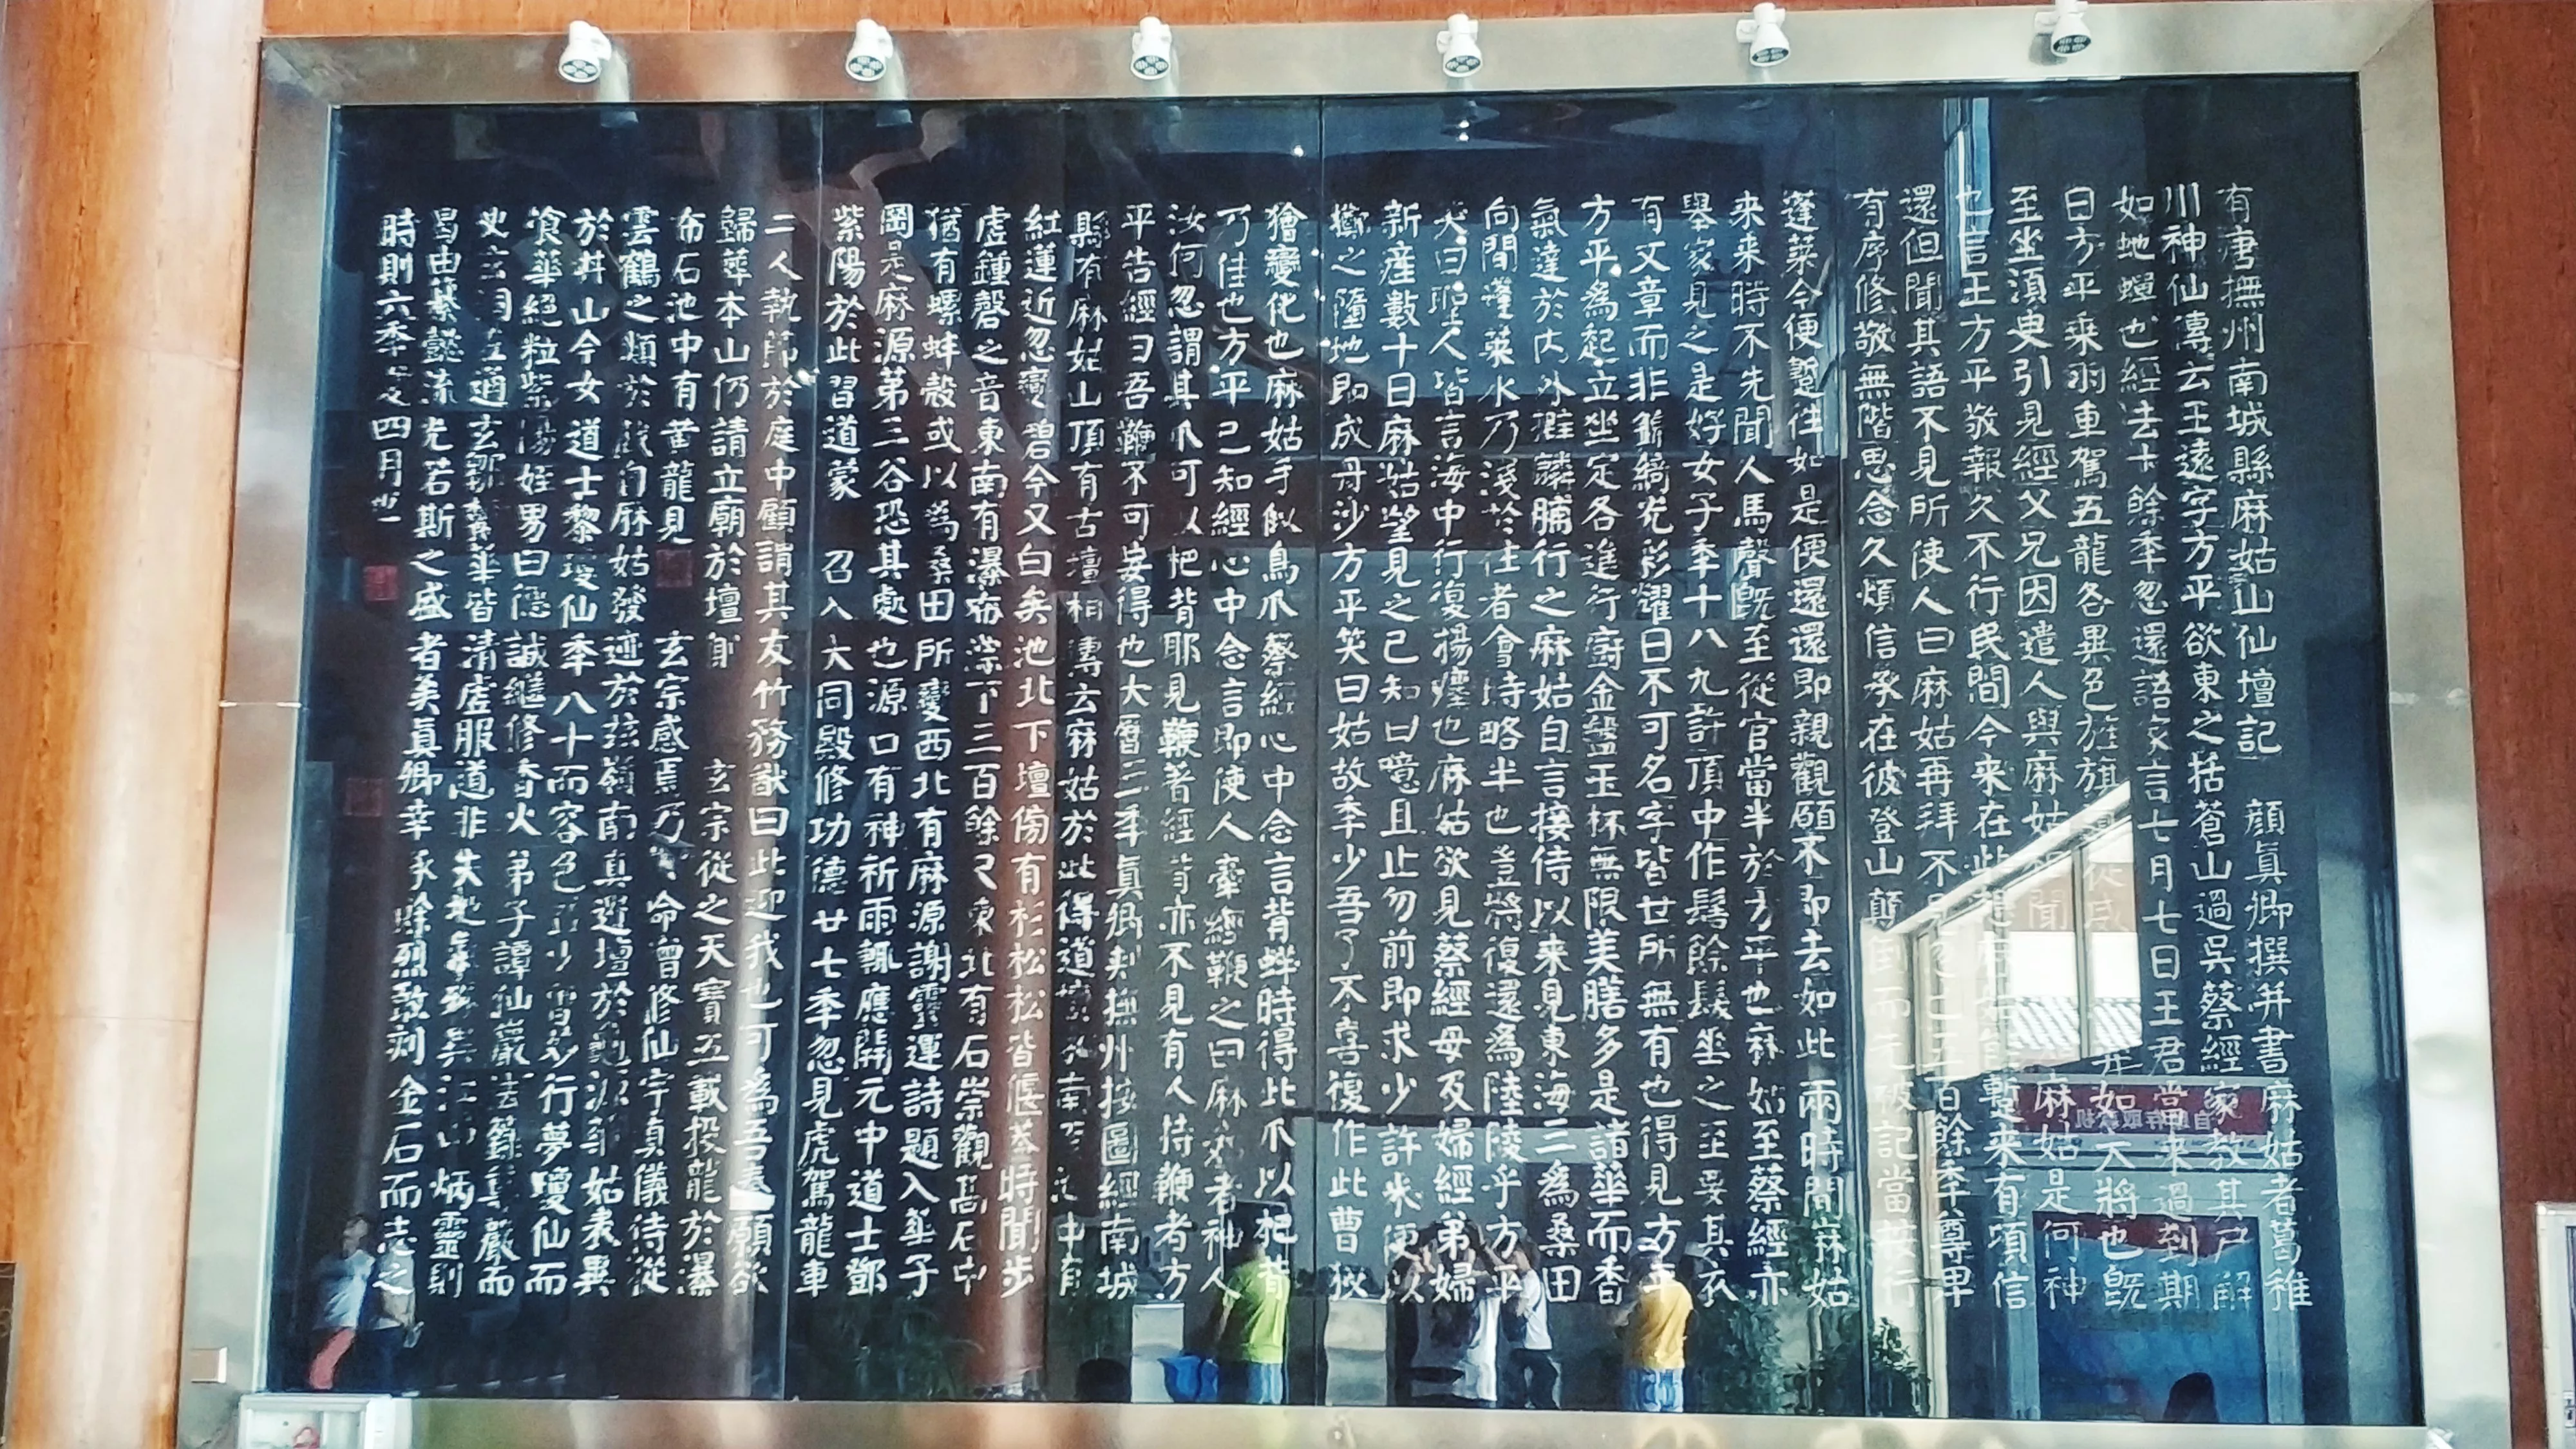 有唐撫州南城縣麻姑山仙壇記 顔真卿撰并書麻姑者葛稚
川神仙傳云王遠字方平欲東之括蒼山過吳蔡經家教其尸解
如蛇蟬也經去十餘季忽還語家言七月七日王君當來過到期
日方平乘羽車駕五龍各異色旌旗 從威 如大將也旣
至坐須臾引見經父兄因遣人與麻姑 聞 麻姑是何神
也言王方平敬報久不行民間今來在此想 蹔來有頃信
還但聞其語不見所使人曰麻姑再拜不 五百餘季尊卑
有序修敬無階思念久煩信承在彼登山顛倒而先被記當按行
蓬萊今便蹔往如是便還還即親觀願不即去如此兩時間麻姑
來來時不先聞人馬聲旣至從官當半於方平也麻姑至蔡經亦
舉家見之是好女子季十八九許頂中作髻餘髮垂之至要其衣
有文章而非錦綺光彩耀日不可名字皆世所無有也得見方平
方平為起立坐定各進行廚金盤玉杯無限美膳多是諸華而香
氣達於內外擗麟脯行之麻姑自言接侍以來見東海三為桑田
向間蓬萊水乃淺於往者會時略半也豈將復還為陸陵乎方平
笑曰聖人皆言海中行復揚塵也麻姑欲見蔡經母及婦經弟婦
新產數十日麻姑望見之已知曰噫且止勿前即求少許米便以
擲之墮地即成丹沙方平笑曰姑故季少吾了不喜復作此曹狡
獪變化也麻姑手似鳥爪蔡經心中念言背蛘時得此爪以杷背
乃佳也方平已知經心中念言即使人牽經鞭之曰麻姑者神人
汝何忽謂其爪可以杷背耶見鞭著經背亦不見有人持鞭者方
平告經曰吾鞭不可妄得也大曆三季真卿刺撫州按圖經南城
縣有麻姑山頂有古壇相傳云麻姑於此得道壇 南 池中有
紅蓮近忽變碧今又白矣池北下壇傍有杉松松松皆偃蓋時聞步
虛鍾磬之音東南有瀑布淙下三百餘尺東北有石崇觀高石中
猶有螺蚌殼或以為桑田所變西北有麻源謝靈運詩題入華子
岡是麻源第三谷恐其處也源口有神祈雨輒應開元中道士鄧
紫陽於此習道蒙 召入大同殿修功德廿七季忽見虎駕龍車
二人執節於庭中顧謂其友竹務猷曰此迎我也可為吾奏願欲
歸葬本山仍請立廟於壇側 玄宗從之天寶五載投龍於瀑
布石池中有黃龍見 玄宗感焉乃 命增修仙宇真儀侍從
雲鶴之類於戲自麻姑發迹於茲嶺南真遺壇於龜源 姑表異
於井山今女道士黎瓊仙季八十而容色益少曾妙行夢瓊仙而
飡華絕粒紫陽姪男曰德誠繼修香火弟子譚仙巖法籙尊嚴而
史玄洞左通玄鄒鬱華皆清虛服道非夫地氣殊異江山炳靈則
曷由纂懿流光若斯之盛者矣真卿幸承餘烈敢刻金石而志之
時則六季夏四月也